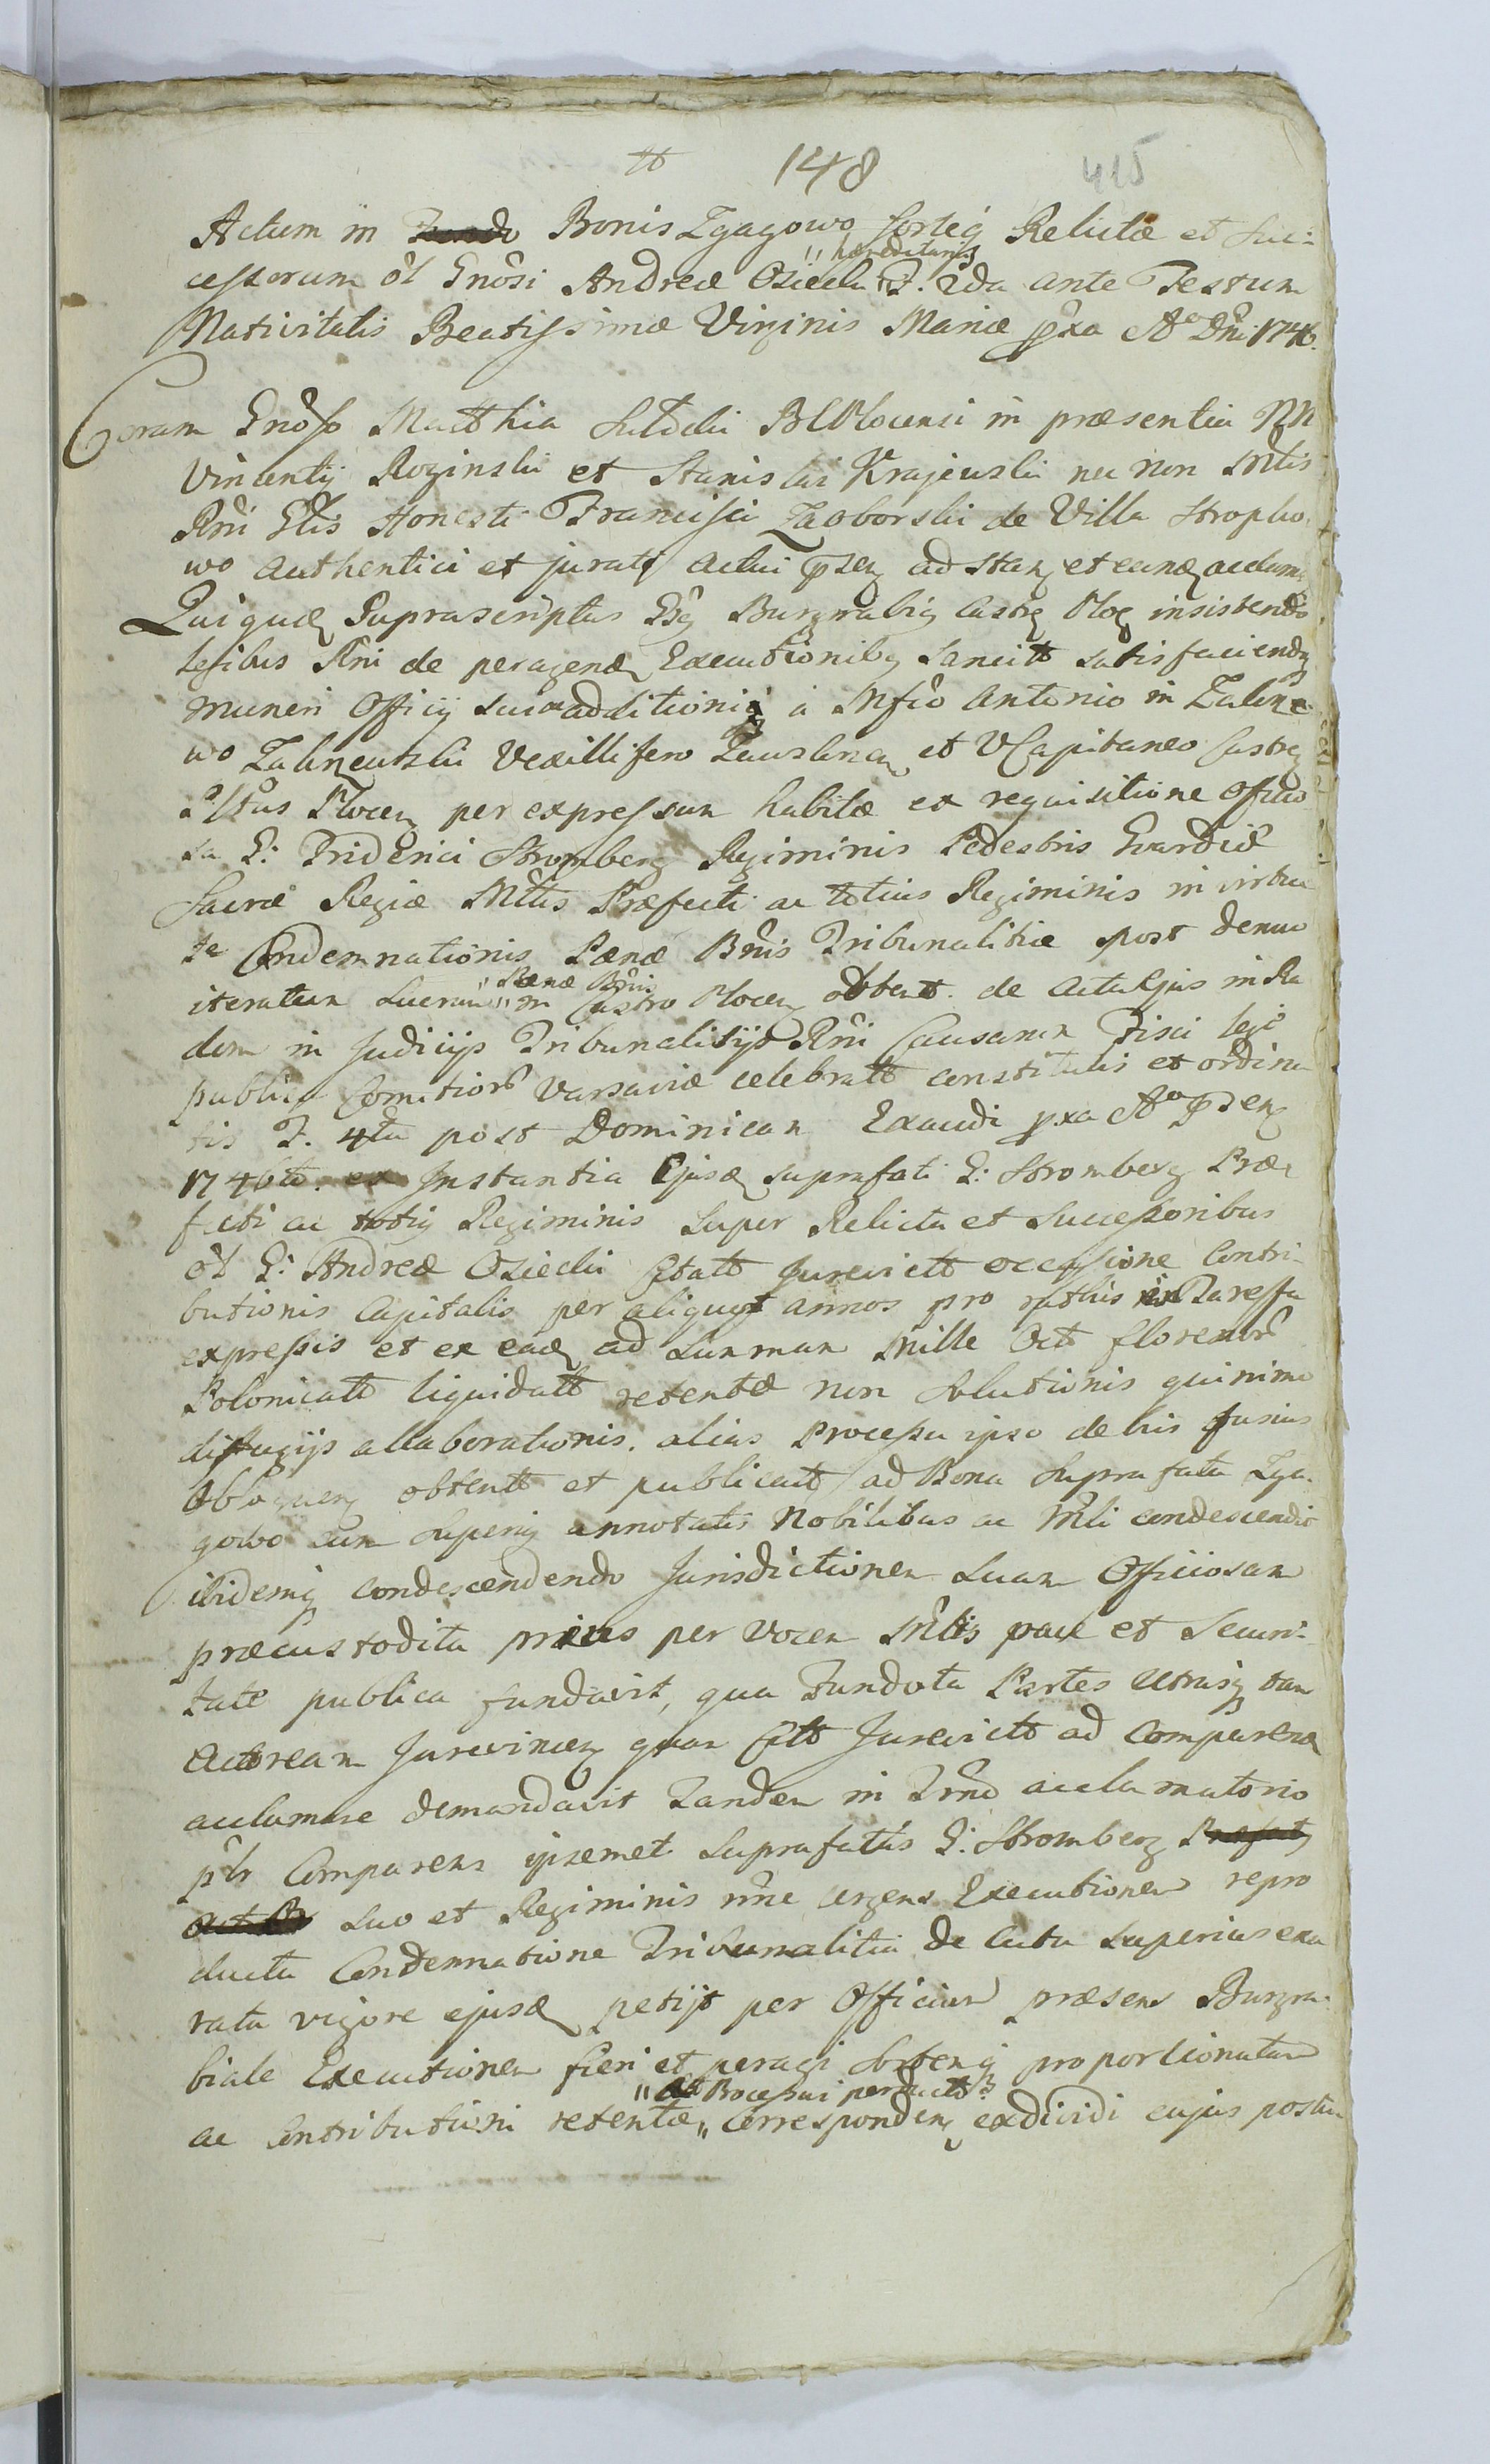 148
415
Actum in Fundo Bonis Zgagowo Sorteq Relictæ et Suc-
"hæreditarijs
cessorum ol Gnosi Andreæ Osiecki F. 2da ante Festum
Nativitatis Beatissimæ Virginis Mariæ pxa Ao Dni 1746.
Coram Gnoso Matthia Sułocki BCPlocensi in præsentia NN
Vincentij Roginski et Stanislai Krajewski nec non Mtlis
Rni Glis Honesti Francisci Zaoborski de Villa Stropko
wo authentici et jurati actui pseñ ad stañ et eund acclam
Quiquæ Suprascriptus Gsq Burgrabiq Castr Ploc insistendo
legibus Rni de peragend Executionibq sancitt satisfaciendq
muneri Officij sui additioniq á Mfco Antonio in Zaleze
wo Zalenzeutski Vexillifero Zauskrneñ et VCapitaneo Castr
Plocen per expressum habitæ ex requisitione officio
sa G: Friderici Stromberg Regiminis Pedestris Gvardiæ
Sacræ Regiæ Mttis Præfecti ac totius Regiminis in virtu
te Condemnationis Pænæ Bnis Tribunalitiæ post denuo
"Pænæ Bnis
iteratum Lucrum" in Castro Plocen obtent. de actu Ejus in Ra
dom in Judicijs Tribunalitijs Rni Causarum Fisci lege
publica Comitior Varsaviæ celebratt constitutis et ordina
tis F. 4ta post Dominicam Exaudi pxa Ao pseñ
1746to. ex Instantia Ejusd suprafati G: Stromberg Præ
fecti ac totiq Regiminis super Relicta et Successoribus
ol G: Andreæ Osiecki Citatt Jurevictt occasione Contri-
butionis Capitalis per aliquot annos pro rathis in Tareffa
expressis et ex ead ad Summam Mille Oct florenor
Polonicatt liquidatt retentæ non solutionis quinimo
diffugijs allaborationis. alias Processu ipso de his fusius
obloqueñ obtent et publicatt ad Bona Suprafata Zga-
gowo cum superiq annotatis Nobilibus ac Mtli condescendit
ibidemq condescendendo Jurisdictionem suam Officiosam
præcustodita prius per vocem Mtlis pace et Securi-
tate publica fundavit, qua Fundata Partes Utrasq tam
Actoream Jurevinceñ quam Citt Jurevictt ad Comparend
acclamare demandavit Tandem in Trno acclamatorio
plr Comparens ipsemet Suprafatus G: Stromberg Præfectq
suo et Regiminis nne urgens Executionem repro
ducta Condemnatione Tribunalitia de actu superius exa
rata vigore ejusd petijt per Officium præsens Burgra-
biale Executionem fieri et peragi Sortemq proportionatam
"ac Processui perducto
ac Contributioni retentæ" Correspondeñ exdividi cujus postu